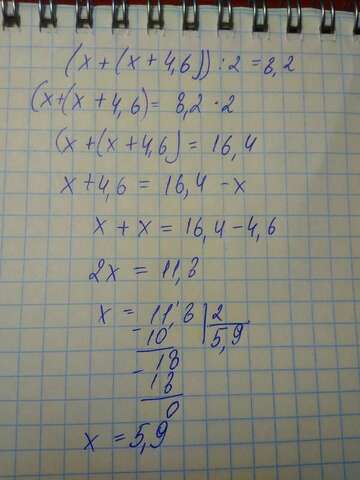 (x + (x + 4,6)) : 2 = 8,2
(x+(x + 4,6) = 8,2 · 2
(x+(x+4,6) = 16,4
x + 4,6 = 16,4 - x
x + x = 16,4 - 4,6
2x = 11,8
x = 11,8 | 2
- 10 5,9
- 18
18
0
x = 5,9